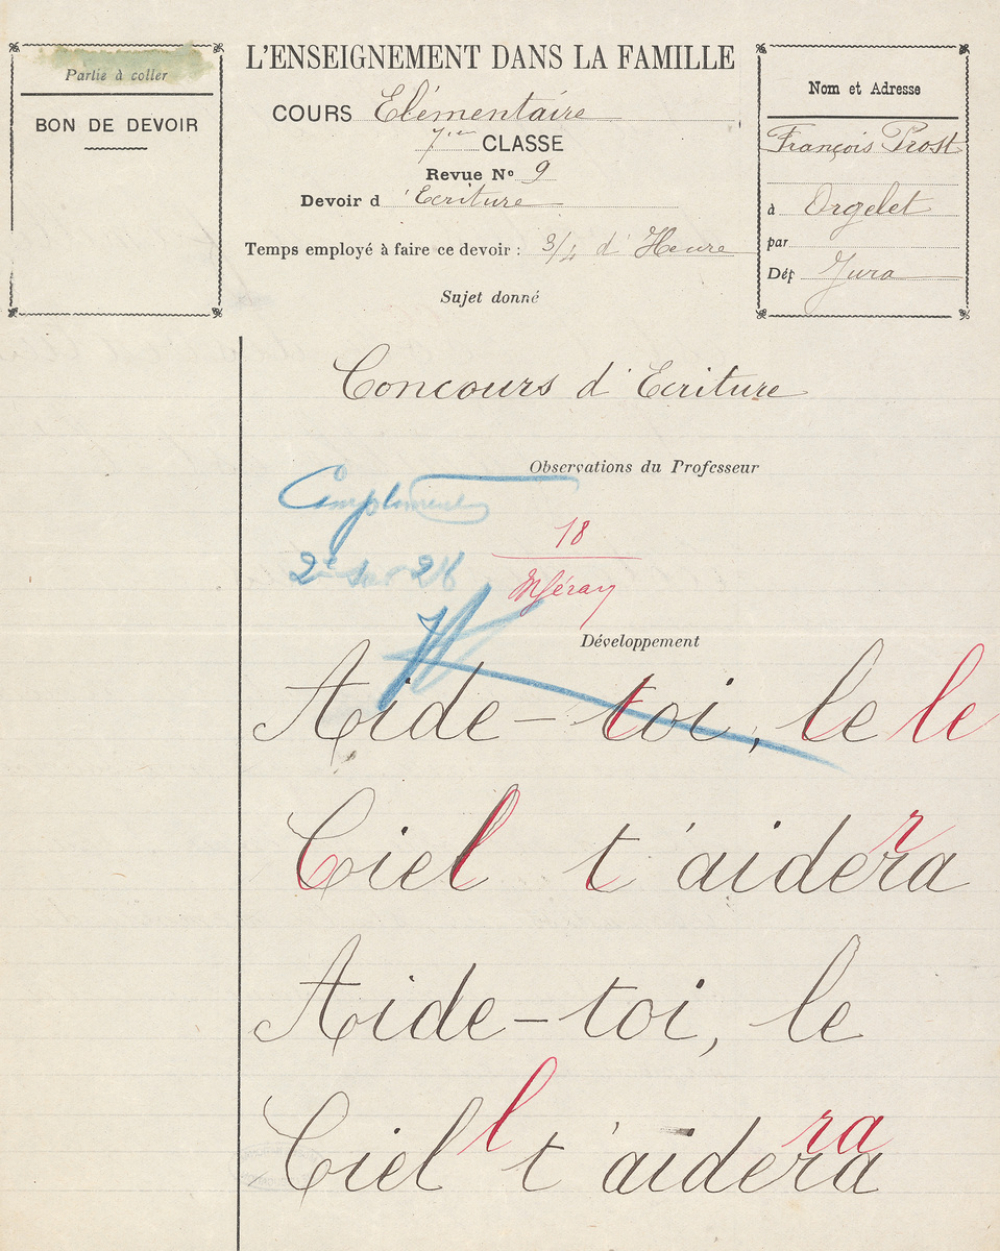 Partie à coller
BON DE DEVOIR
L'ENSEIGNEMENT DANS LA FAMILLE
COURS Elémentaire
7ième CLASSE
Revue No 9
Devoir d'Ecriture
Temps employé à faire ce devoir : 3/4 d'Heure
Sujet donné
Nom et Adresse
François Prost
à Orgelet
par
Dép Jura
Concours d'Ecriture
Observations du Professeur
Compliments
18
Développement
Aide-toi, le le
Ciel l t'aidera r
Aide-toi, le
Ciel l t'aidera ra